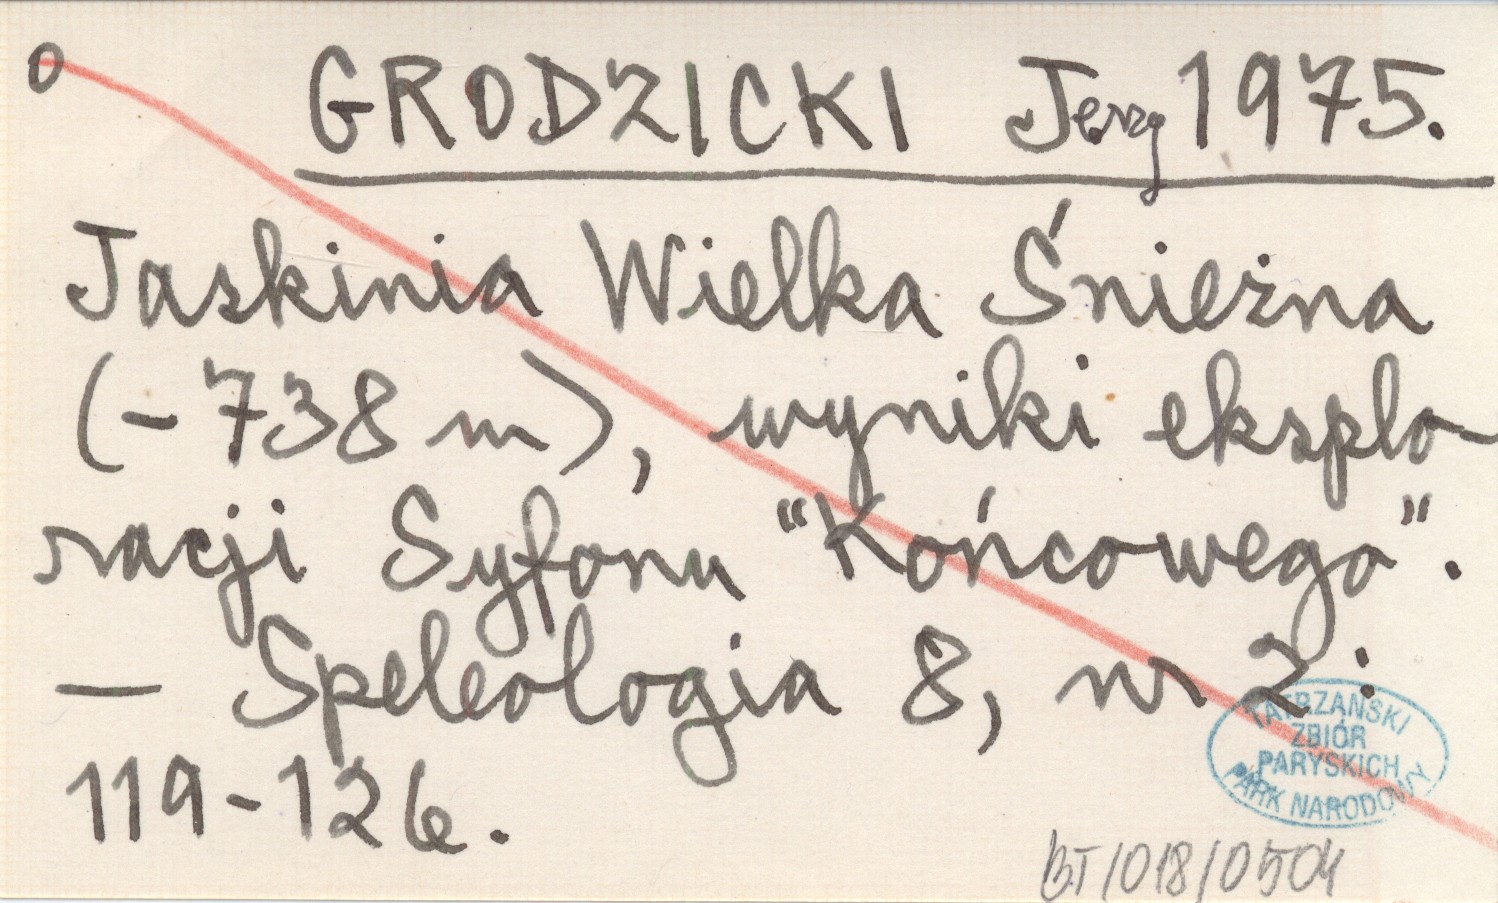 o GRODZICKI Jerzy 1975.
Jaskinia Wielka Śnieżna
(-738 m), wyniki eksplo-
racji Syfonu "Końcowego".
— Speleologia 8, nr 2:
119-126.
TATRZAŃSKI
ZBIÓR
PARYSKICH
PARK NARODOWY
BT/018/0504